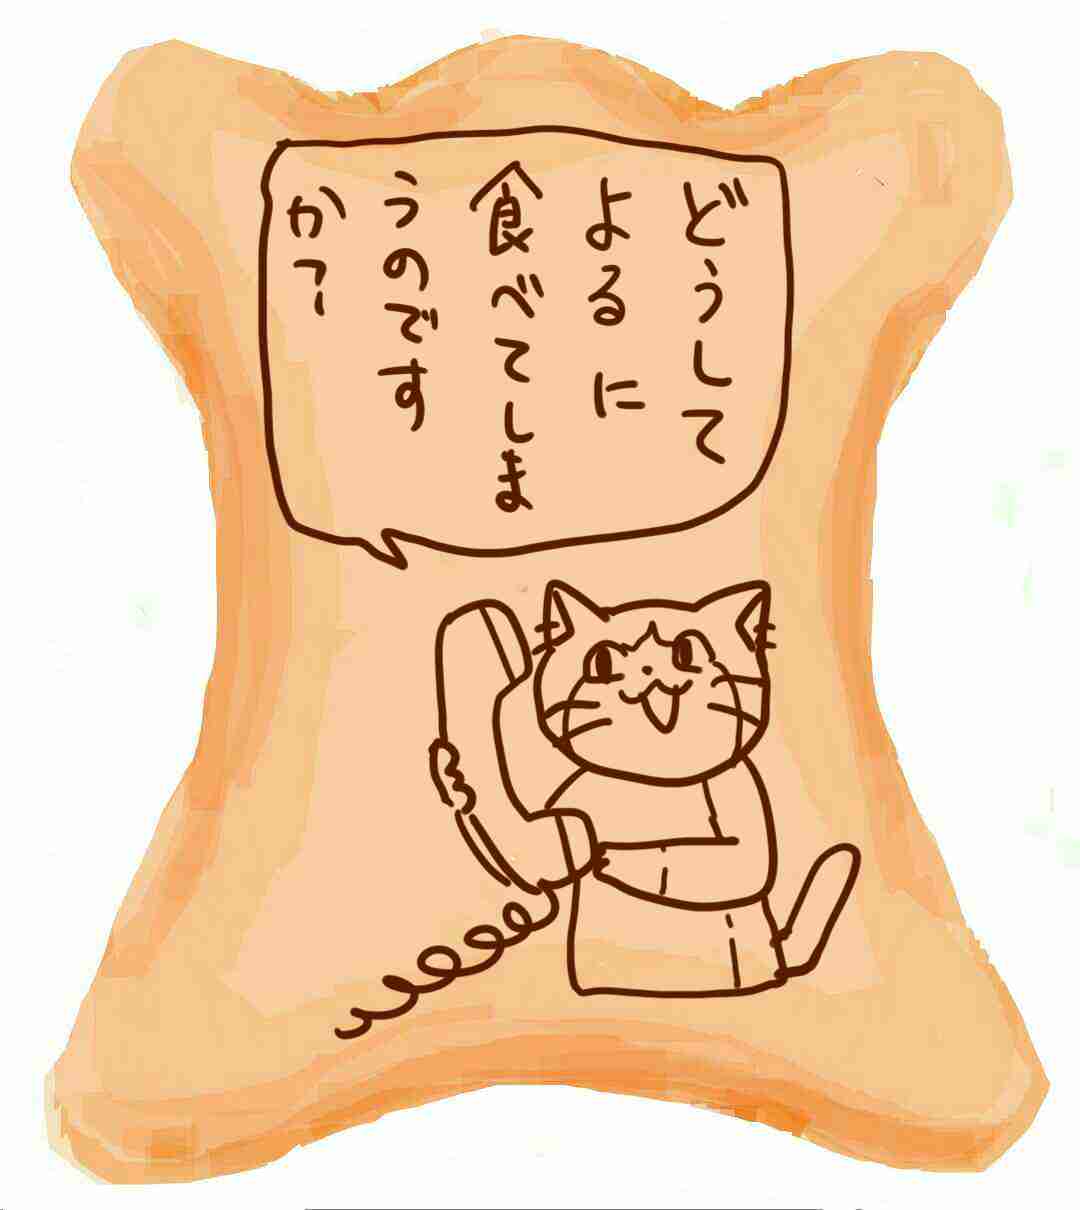 どうして
よるに
食べてしま
うのです
か?